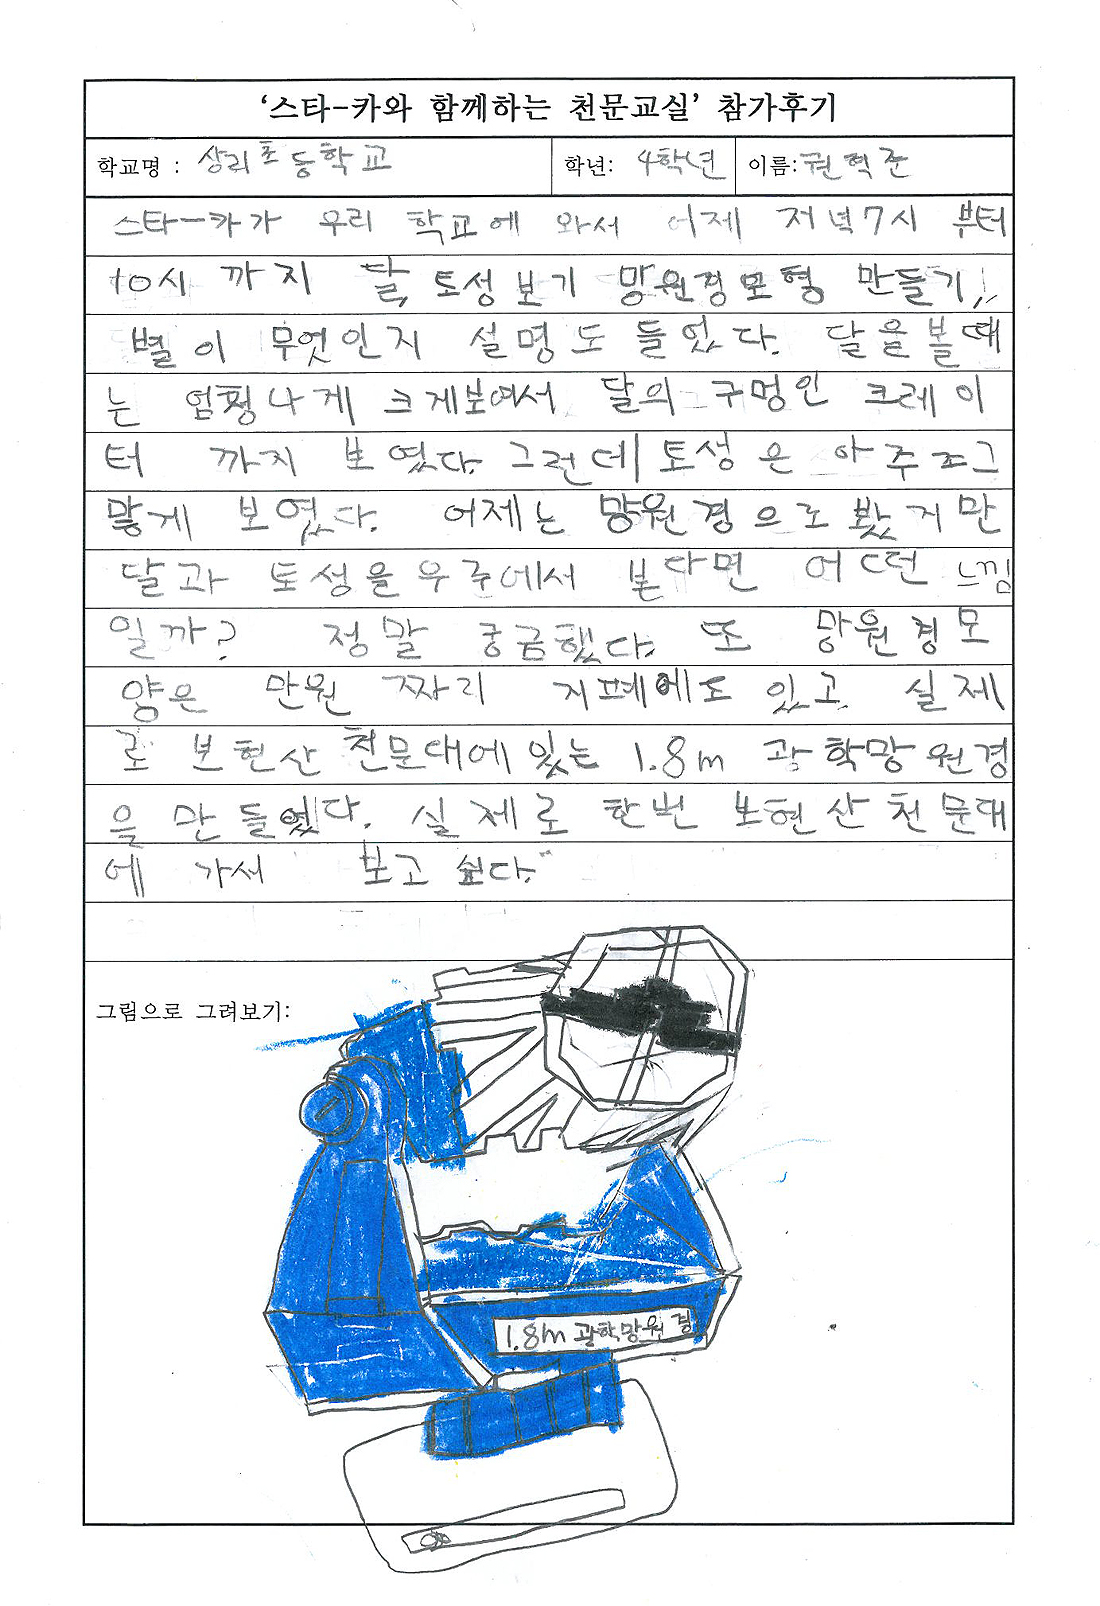 '스타-카와 함께하는 천문교실' 참가후기
학교명 : 상리초등학교 학년: 4학년 이름: 권혁준
스타-카가 우리 학교에 와서 어제 저녁7시 부터
10시 까지 달, 토성보기 망원경모형 만들기,
별이 무엇인지 설명도 들었다. 달을볼때
는 엄핑나게 크게보여서 달의 구멍인 크레이
터 까지 보였다. 그런데 토성은 아주조그
맣게 보였다. 어제는 망원경으로 봤지만
달과 토성을 우주에서 본다면 어떤 느낌
일까? 정말 궁금했다. 또 망원경모
양은 만원 짜리 지폐에도 있고 실제
로 보현산 천문대에 있는 1.8m 광학망원경
을 만들었다. 실제로 한번 보현산 천문대
에 가서 보고 싶다."
그림으로 그려보기:
1.8m 광학망원경